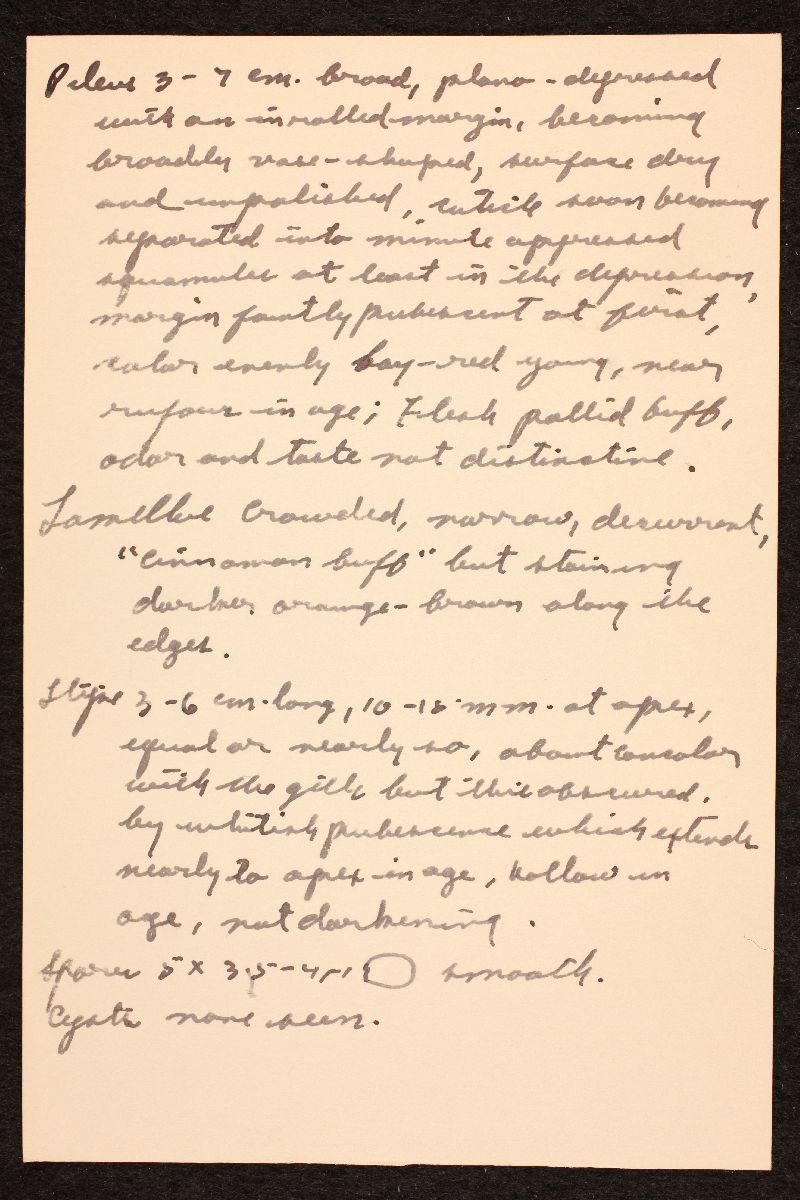 Pileus 3 - 7 cm. broad, plano-depressed
with an inrolled margin, becoming
broadly vase-shaped, surface dry
and unpolished, cuticle soon becoming
separated into minute appressed
squamules at least in the depression,
margin faintly pubescent at first,
color evenly bay-red young, near
rufous in age; Flesh pallid buff,
odor and taste not distinctive.
Lamellae crowded, narrow, decurrent,
"cinnamon buff" but staining
darker orange-brown along the
edges.
Stipe 3 - 6 cm. long, 10 - 18 mm. at apex,
equal or nearly so, about concolor
with the gills but this obscured.
by whitish pubescence which extends
nearly to apex in age, hollow in
age, not darkening.
Spores 5 x 3.5 - 4 smooth.
Cysts none seen.